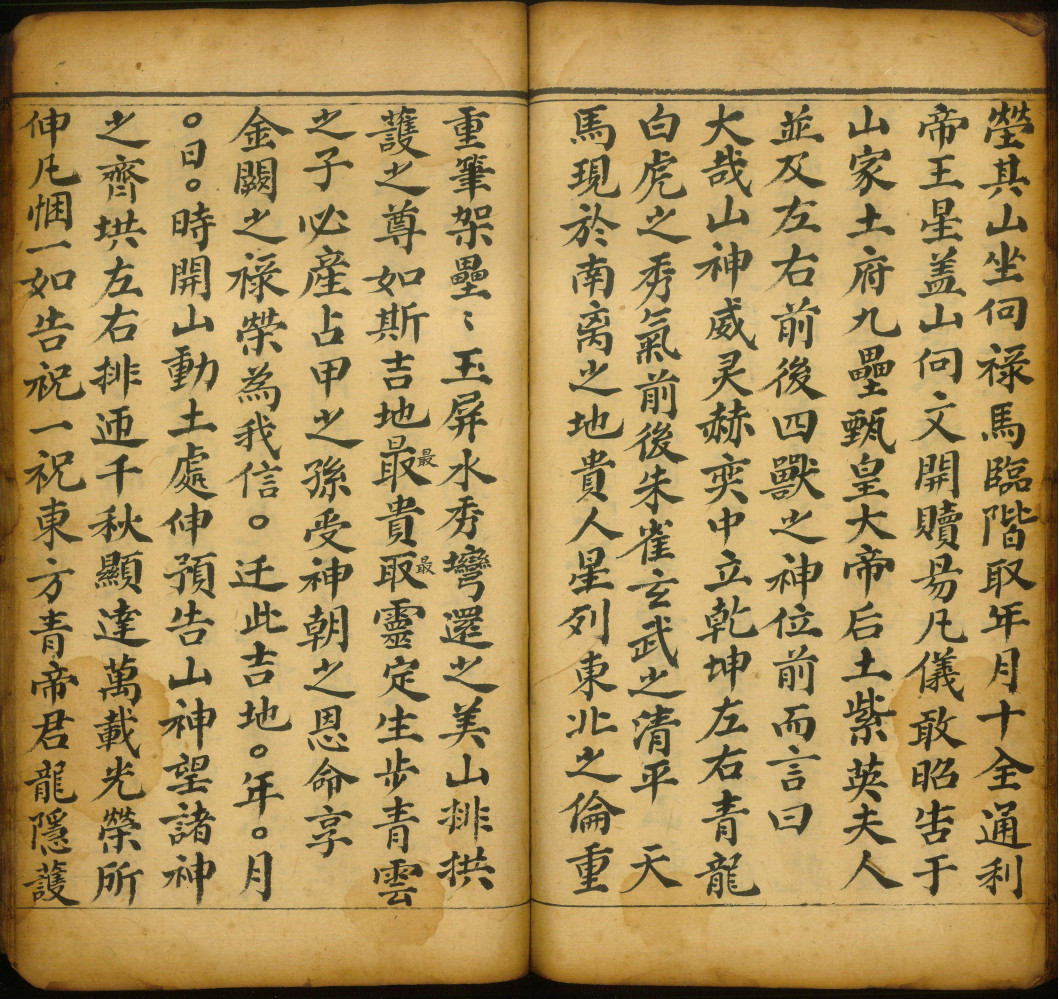 塋其山坐向祿馬臨階取年月十全通利
帝王星盖山向文開牘昜凡儀敢昭告于
山家土府九壘甄皇大帝后土紫英夫人
並及左右前後四獸之神位前而言曰
大哉山神威灵赫奕中立乾坤左右青龍
白虎之秀氣前後朱雀玄武之清平 天
馬現於南离之地貴人星列東北之倫重
重筆架壘〻玉屏水秀彎還之美山排拱
護之尊如斯吉地㝡最貴㝡最靈定生步青雲
之子必産占甲之孫受神朝之恩命享
金闕之祿榮為我信。迁此吉地。年。月
。日。時開山動土處伸預告山神望諸神
之齊拱左右排迊千秋顯達萬載光榮所
伸凡悃一如告祝一祝東方青帝君龍隱護